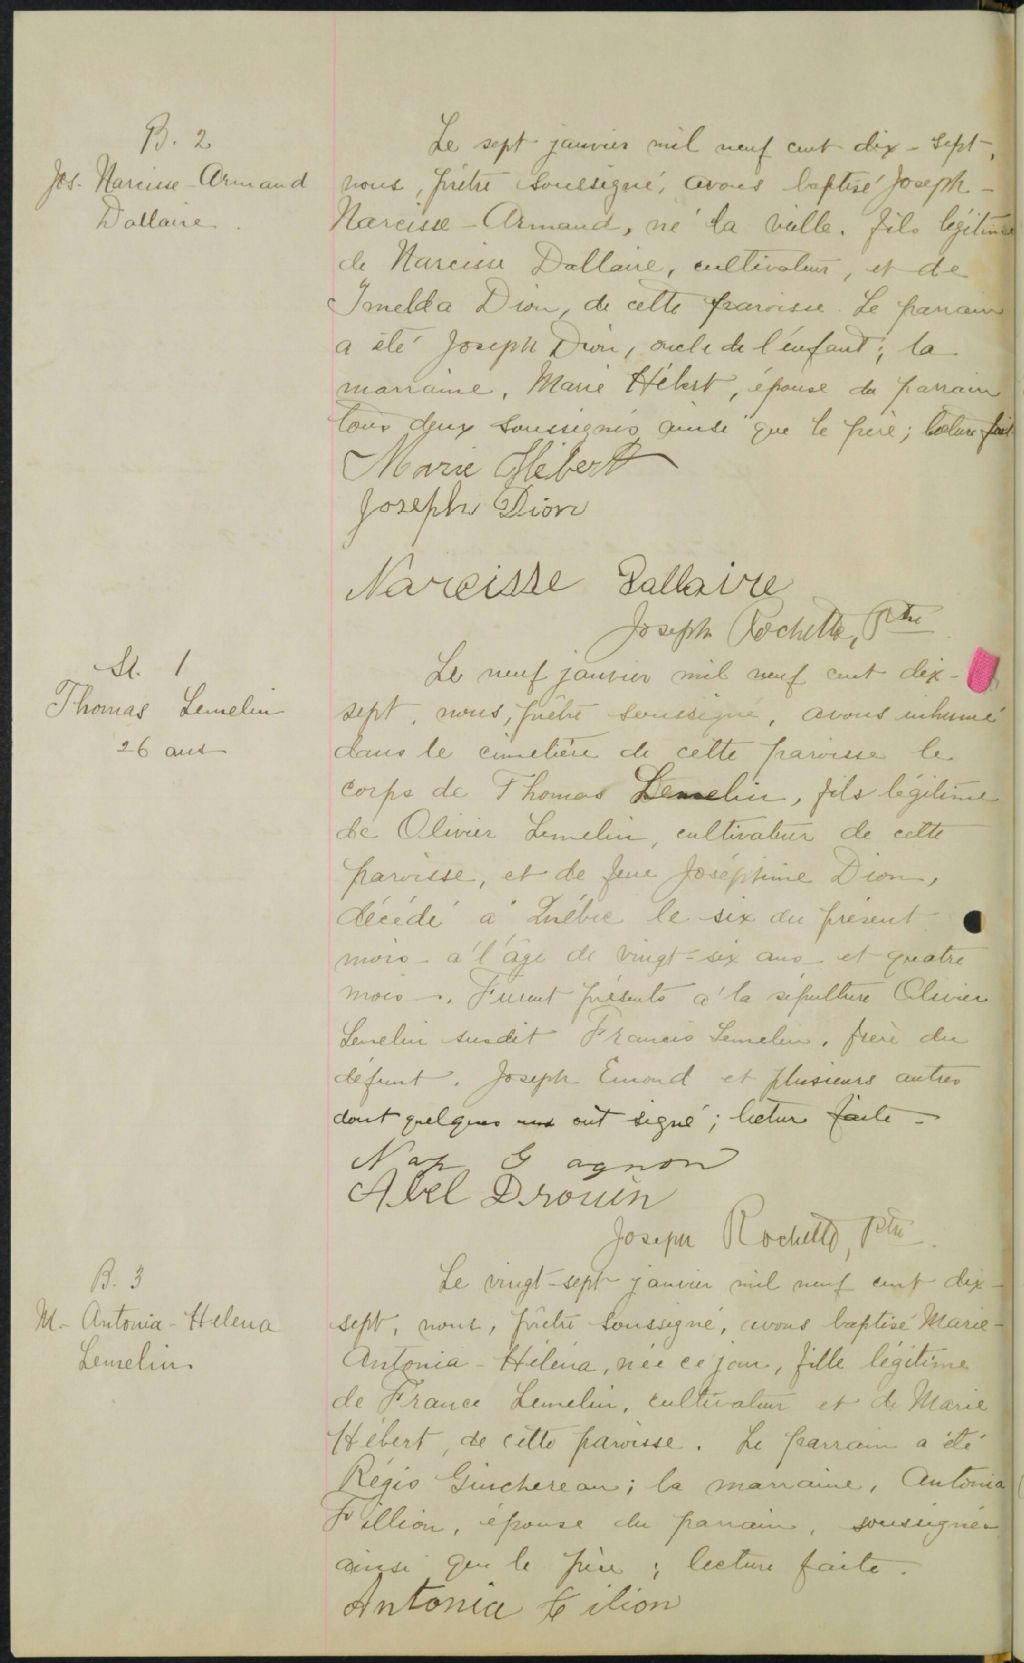 B. 2
Jos. Narcisse-Armand
Dallaire.
Le sept janvier mil neuf cent dix-sept,
nous, prêtre soussigné, avons baptisé Joseph-
Narcisse-Armand, né la veille, fils légitime
de Narcisse Dallaire, cultivateur, et de
Imelda Dion, de cette paroisse. Le parrain
a été Joseph Dion, oncle de l'enfant; la
marraine, Marie Hébert, épouse du parrain
tous deux soussignés ainsi que le père; lecture faite
Marie Hébert
Joseph Dion
Narcisse Dallaire
Joseph Rochette, Ptre
St. 1
Thomas Lemelin
26 ans
Le neuf janvier mil neuf cent dix-
sept, nous, prêtre soussigné, avons inhumé
dans le cimetière de cette paroisse le
corps de Thomas Lemelin, fils légitime
de Olivier Lemelin, cultivateur de cette
paroisse, et de feue Joséphine Dion,
décédé à Québec le six du présent
mois à l'âge de vingt-six ans et quatre
mois. Furent présents à la sépulture Olivier
Lemelin susdit Francis Lemelin, frère du
défunt, Joseph Emond et plusieurs autres
dont quelques uns ont signé; lecture faite-
Nap Gagnon
Abel Drouin
Joseph Rochette, Ptre.
B. 3
M.-Antonia-Helena
Lemelin
Le vingt-sept janvier mil neuf cent dix-
sept, nous, prêtre soussigné, avons baptisé Marie-
Antonia-Héléna, née ce jour, fille légitime
de France Lemelin, cultivateur et de Marie
Hébert, de cette paroisse. Le parrain a été
Régis Guichereau; la marraine, Antonia
Fillion, épouse du parrain, soussignée
ainsi que le père; lecture faite.
Antonia Filion